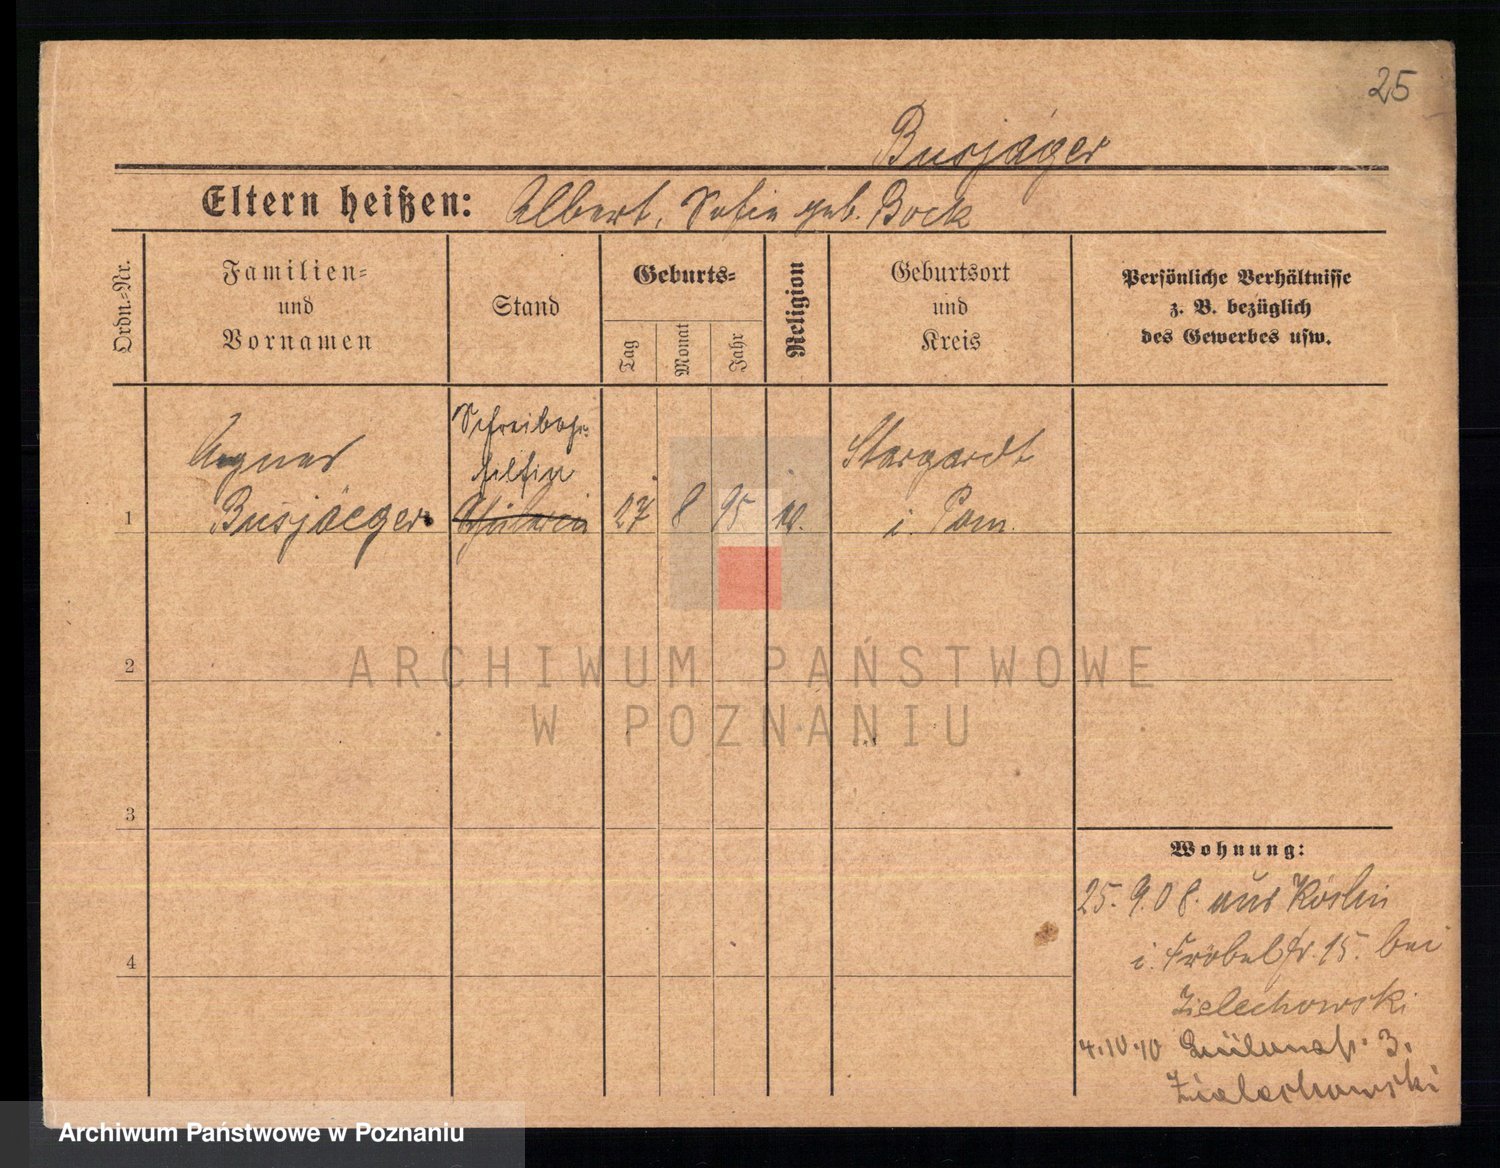 25
Busjäger
Eltern heißen: Albert, Sofie geb. Bock
Ordn.-Nr.
Familien-
und
Vornamen
Stand
Geburts-
Tag
Monat
Jahr
Religion
Geburtsort
und
Kreis
Persönliche Verhältnisse
z. B. bezüglich
des Gewerbes usw.
1
Agnes
Busjaeger
Schreibge-
hilfin
Schülerin
27 8 95
Stargardt
i. Pom.
ARCHIWUM PAŃSTWOWE
W POZNANIU
2
3
4
Wohnung:
25. 9. 08. aus Köslin
i. Fröbelstr. 15. bei
Zielechowski
4.10.10 3.
Zielechowski
Archiwum Państwowe w Poznaniu